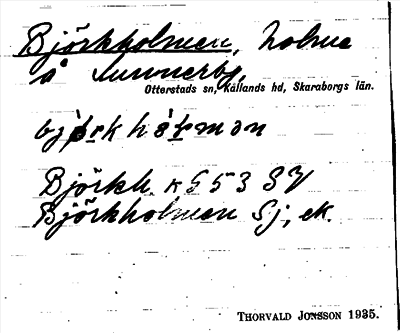 Björkholmen, holme
å Sunnerby,
Otterstads sn, Kållands hd, Skaraborgs län.
Björkh. k 553 SV
Björkholmen Sj, ek.
THORVALD JONSSON 1935.